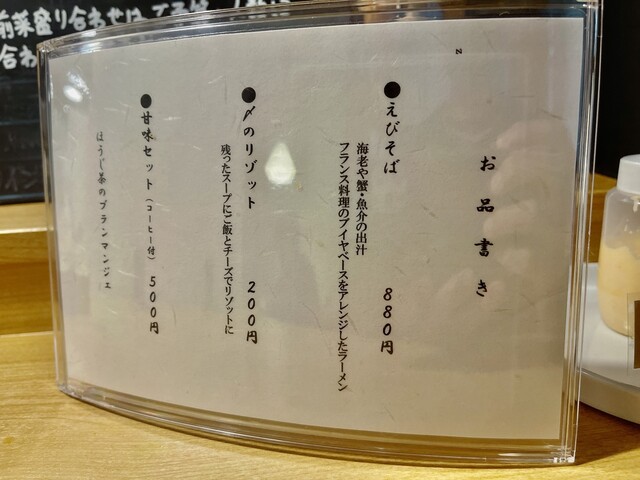 お品書き
●えびそば 880円
海老や蟹・魚介の出汁
フランス料理のブイヤベースをアレンジしたラーメン
●〆のリゾット 200円
残ったスープにご飯とチーズでリゾットに
●甘味セット(コーヒー付) 500円
ほうじ茶のブランマンジェ
前菜盛り合わせは